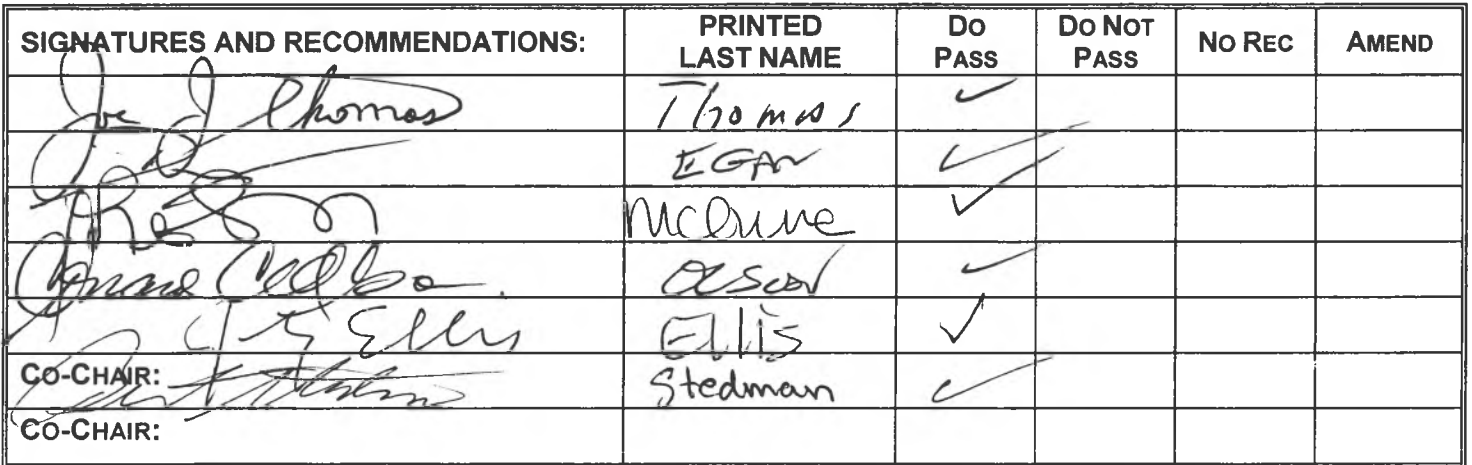 SIGNATURES AND RECOMMENDATIONS: PRINTED LAST NAME DO PASS DO NOT PASS NO REC AMEND
Joe J Thomas Thomas ✓
EGAN ✓
McGuire ✓
Olson ✓
J Ellis Ellis ✓
CO-CHAIR: Stedman ✓
CO-CHAIR: